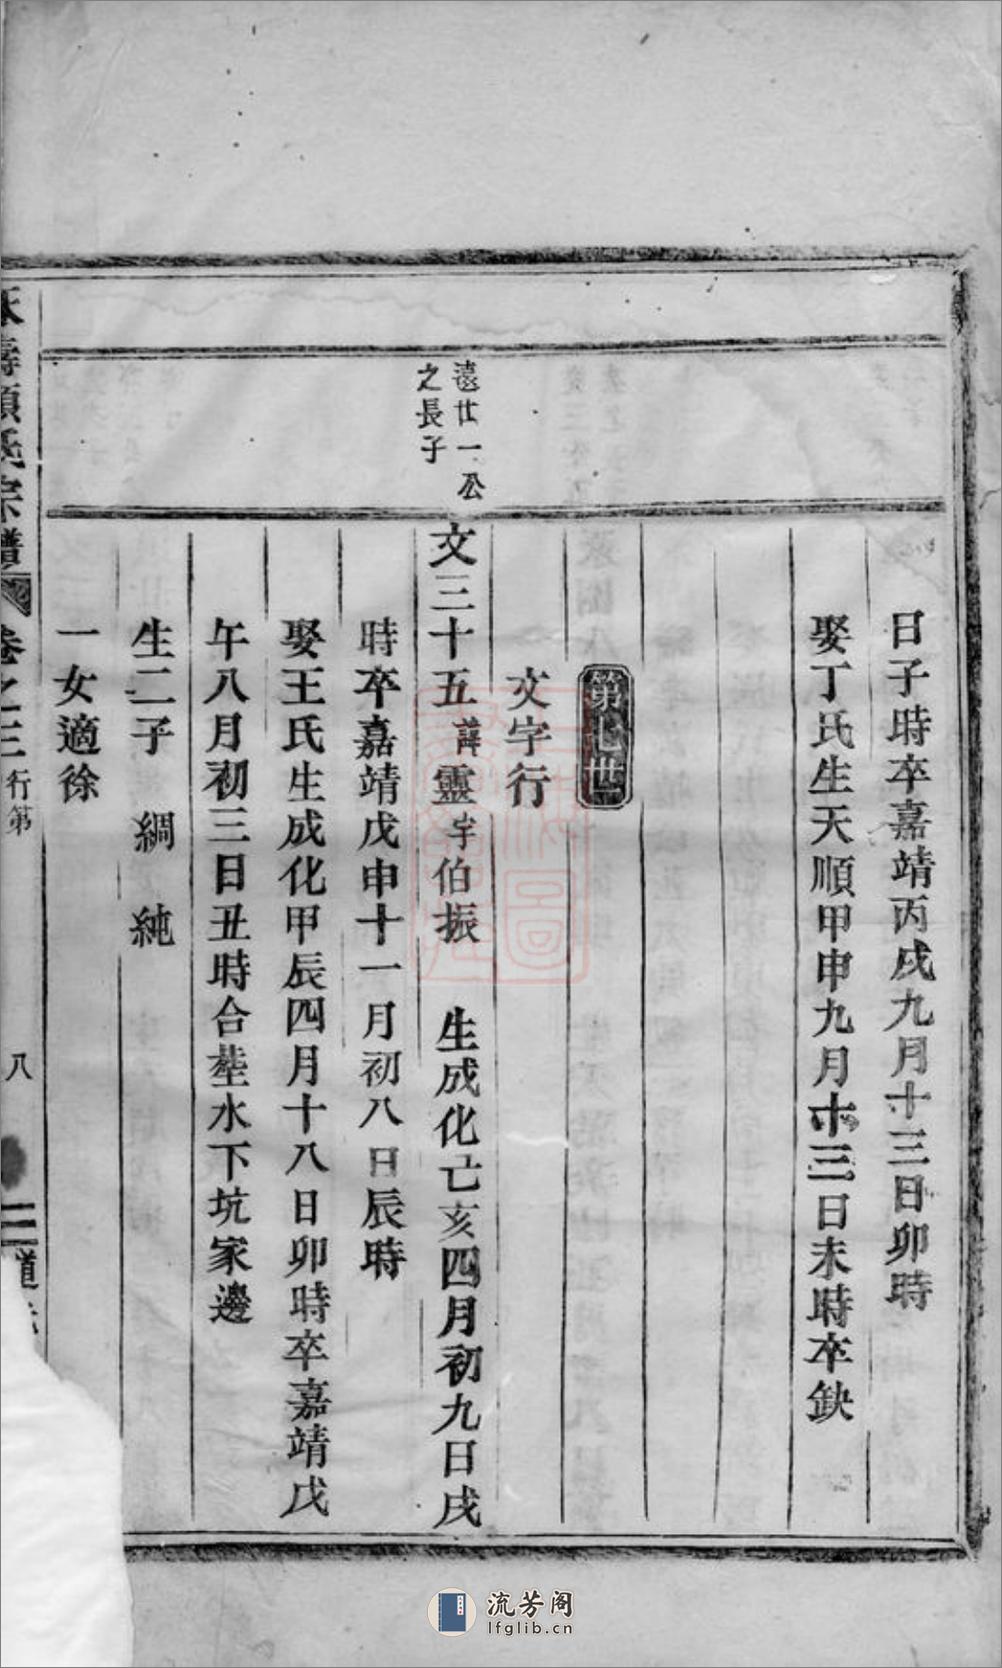 日子時卒嘉靖丙戌九月十三日卯時
娶丁氏生天順甲申九月十三日未時卒缺
第七世
文字行
遠廿一公
之長子
文三十五諱靈字伯振 生成化亡亥四月初九日戌
時卒嘉靖戊申十一月初八日辰時
娶王氏生成化甲辰四月十八日卯時卒嘉靖戊
午八月初三日丑時合塟水下坑家邊
生二子 綢 純
一女適徐
氏宗譜 卷之三 行第 八
流芳阁
lfglib.cn